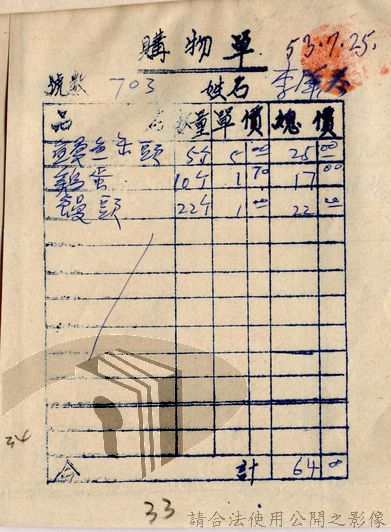 購物單 53.7.25.
號數 703 姓名 李
品名 數量 單價 總價
魚罐頭 5個 5 00 25 00
鷄蛋 10個 1 70 17 00
饅頭 22個 1 00 22 00
合計 64 00
34
33
請合法使用公開之影像